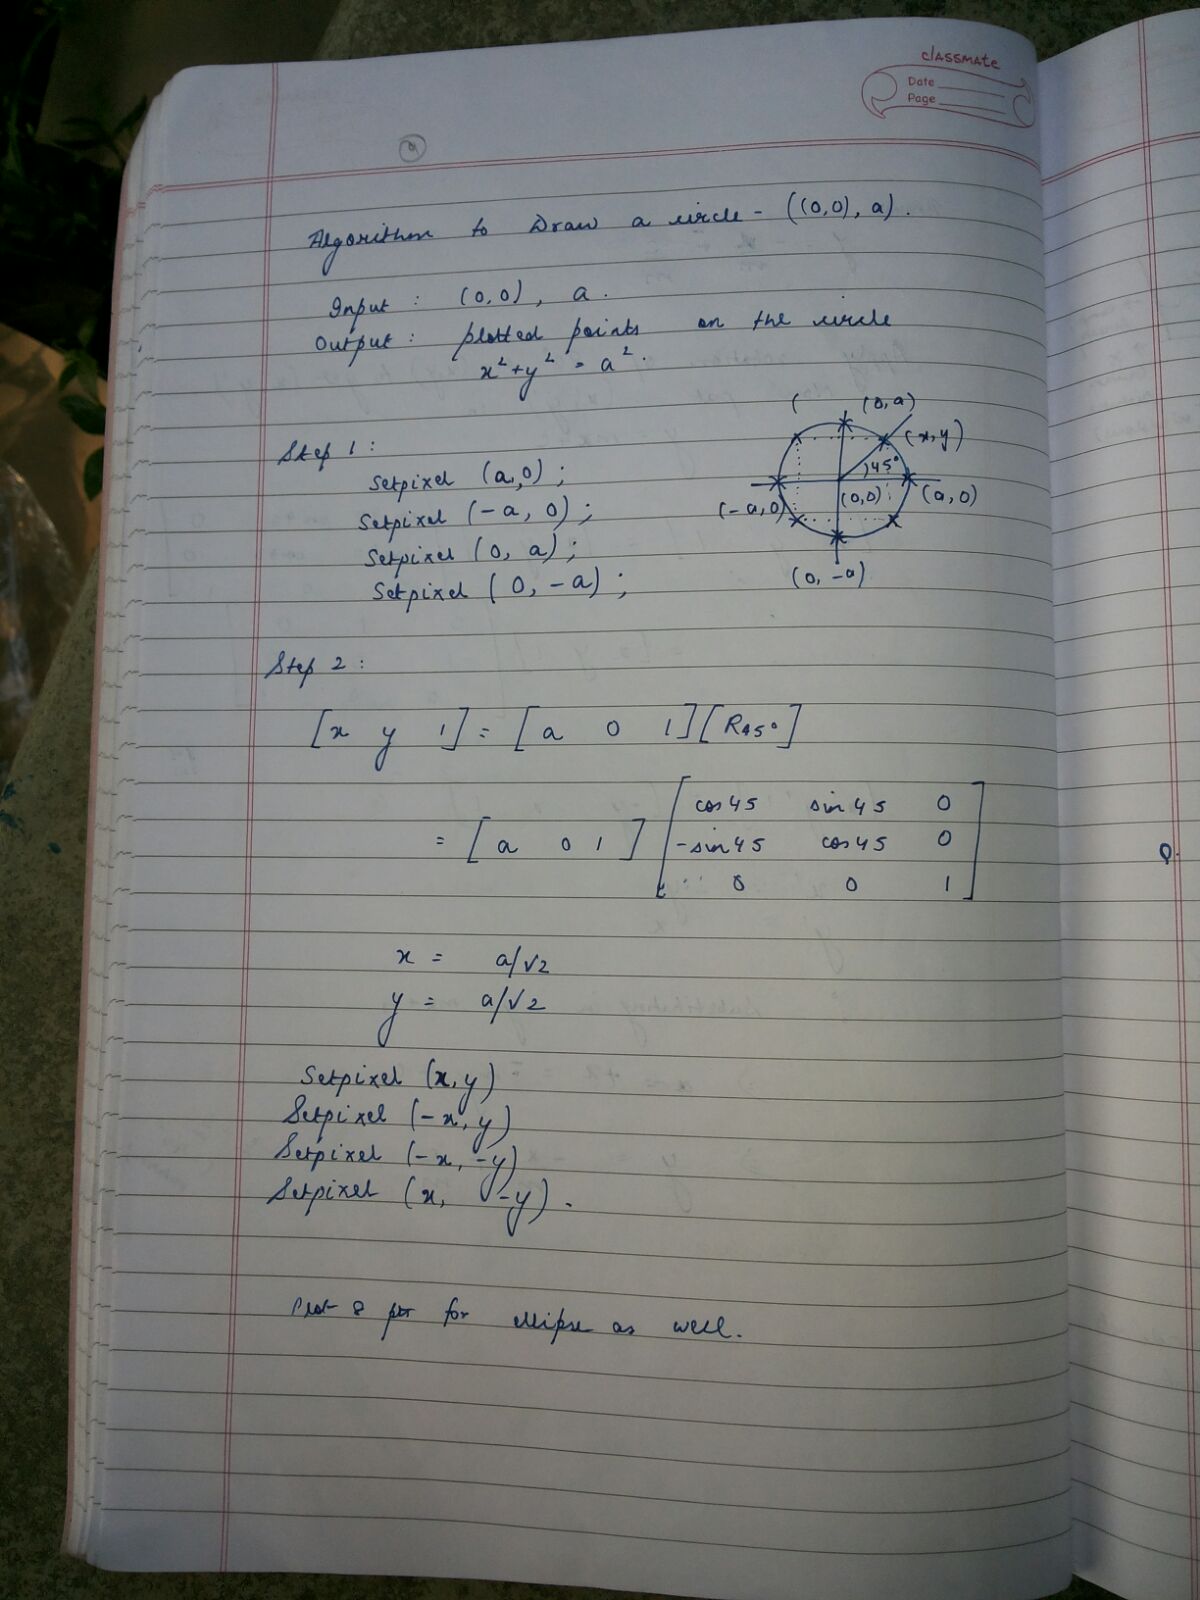 classmate
Date
Page
9
Algorithm to Draw a circle - ((0,0), a).
Input : (0,0), a.
Output : plotted points on the circle
x² + y² = a².
Step 1 :
Setpixel (a,0) ;
Setpixel (-a, 0) ;
Setpixel (0, a) ;
Setpixel (0, -a) ;
(
(0, a)
(x, y)
45°
(-a, 0)
(0,0)
(a, 0)
(0, -a)
Step 2 :
[x y 1] = [a 0 1][R45°]
= [a 0 1] [cos45 sin45 0
-sin45 cos45 0
0 0 1]
x = a/√2
y = a/√2
Setpixel (x, y)
Setpixel (-x, y)
Setpixel (-x, -y)
Setpixel (x, -y).
Plot 8 ptr for ellipse as well.